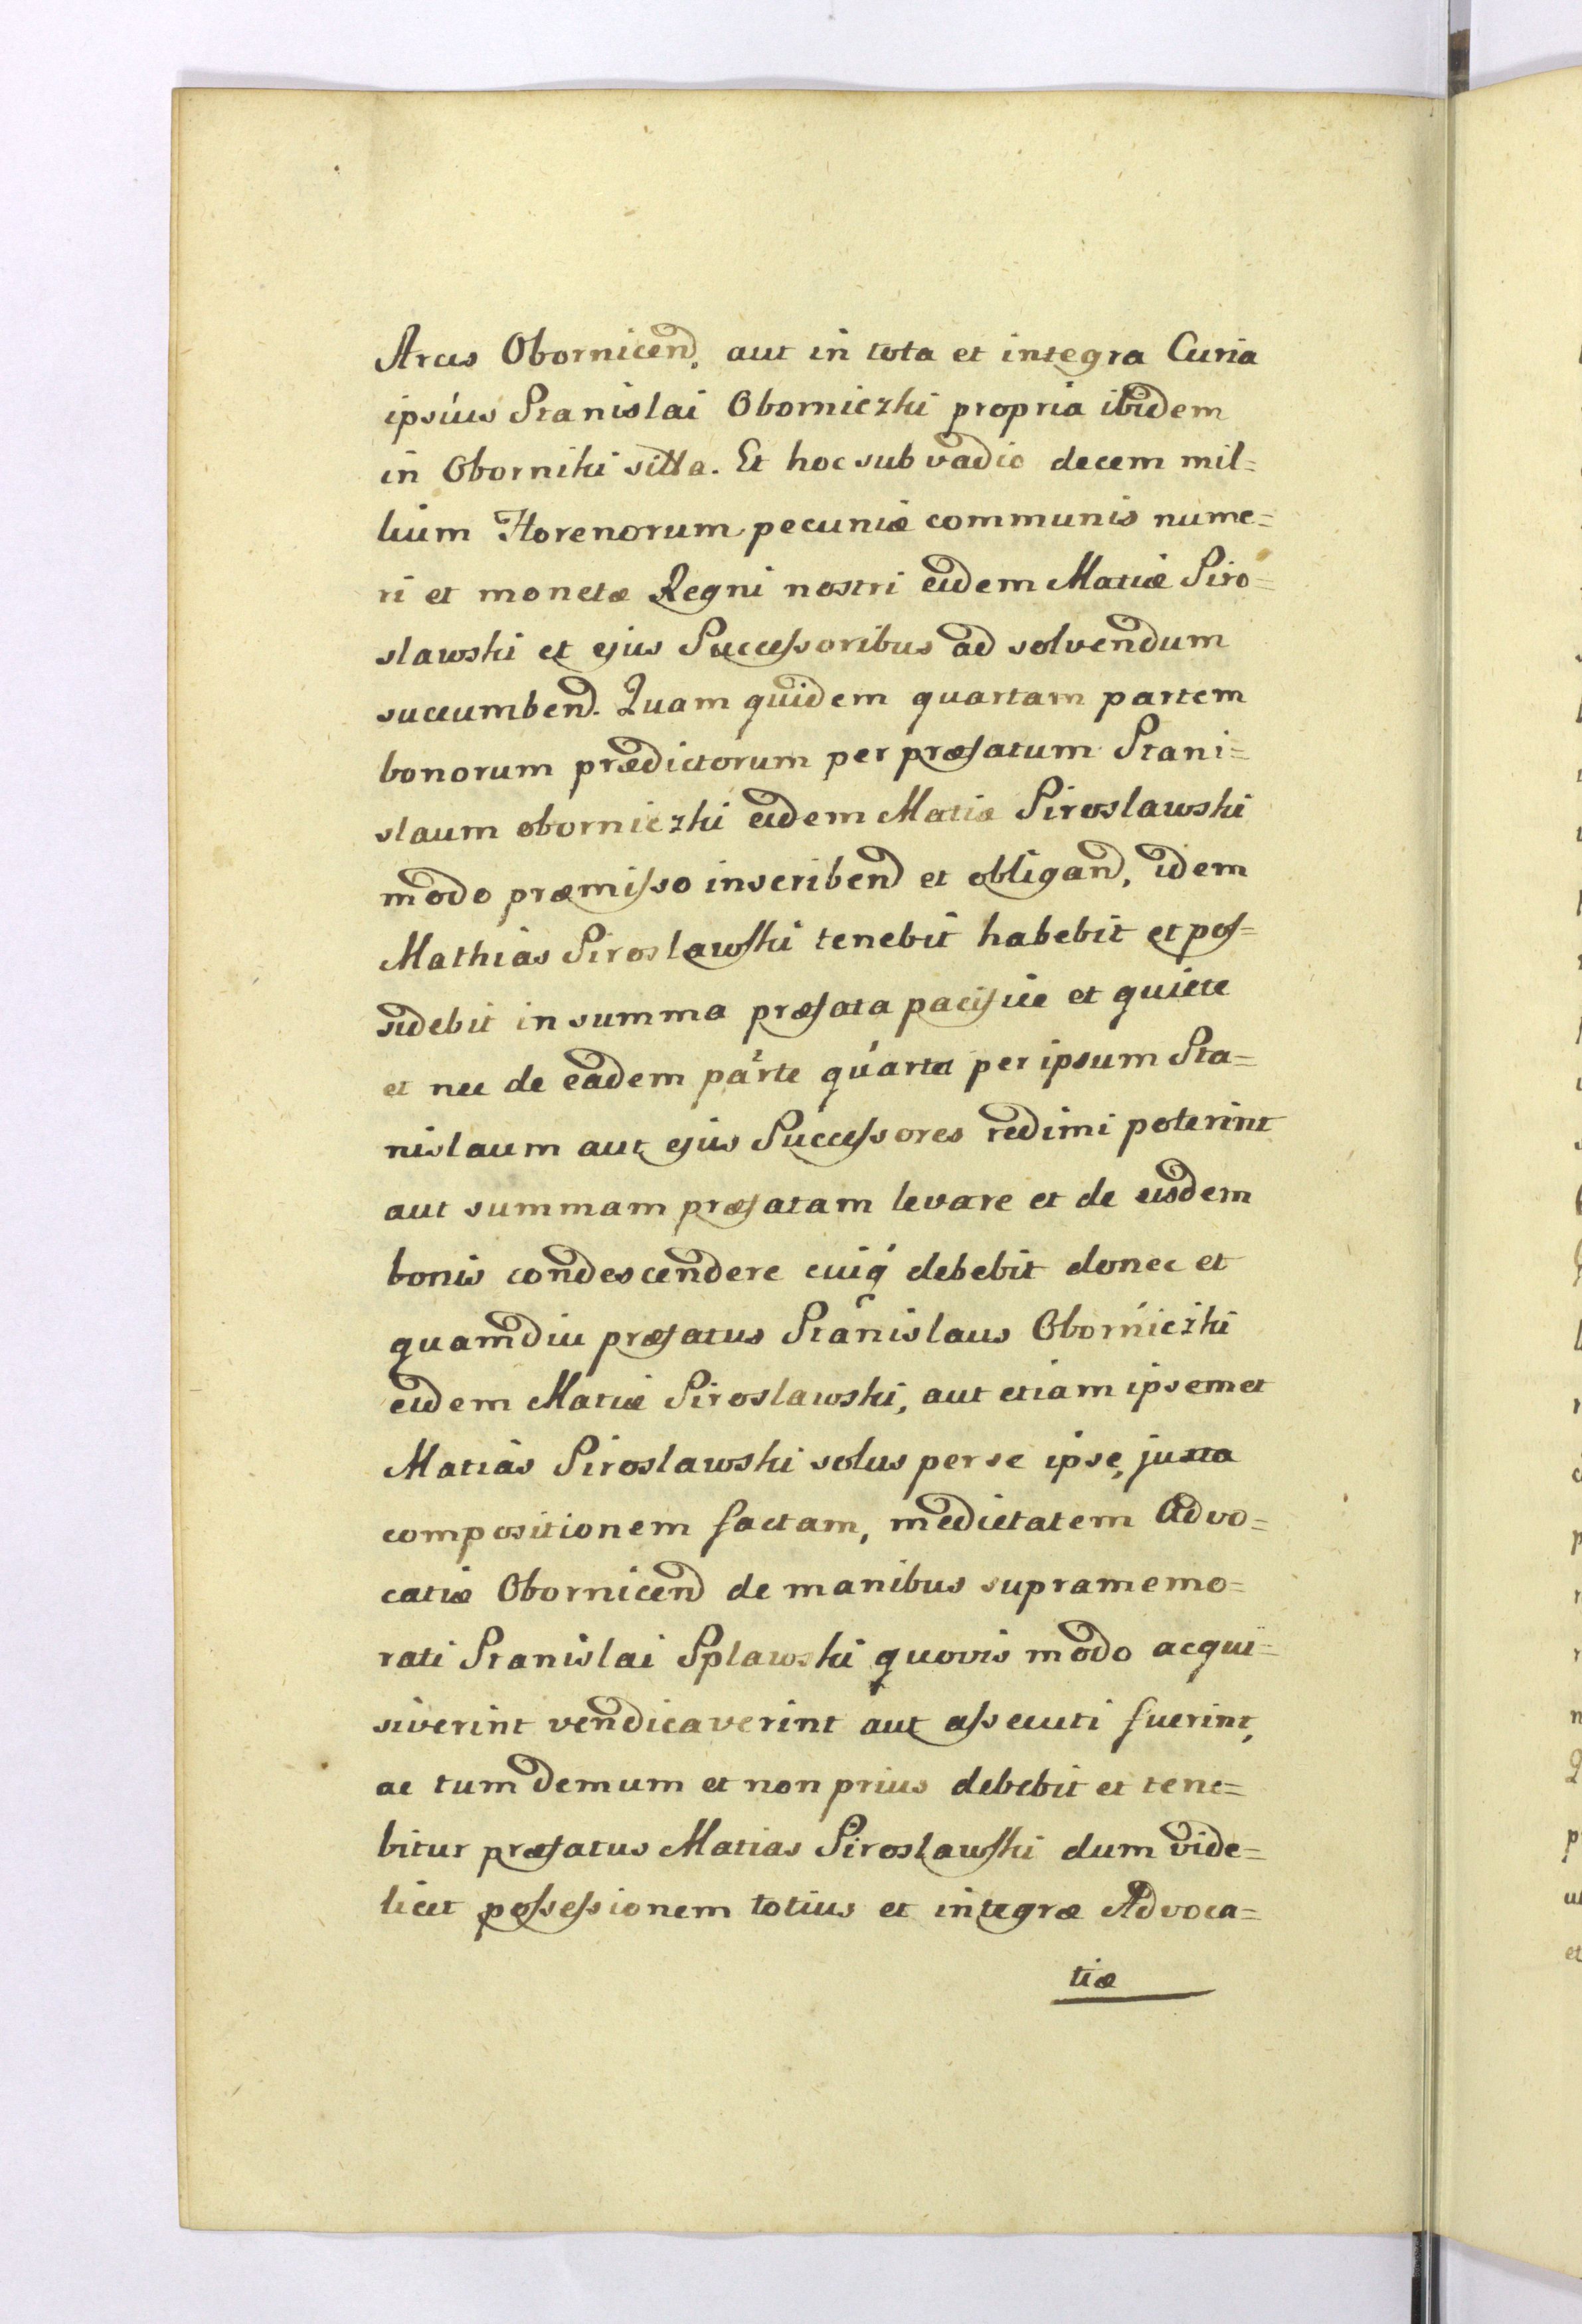 Arcis Obornicend, aut in tota et integra Curia
ipsius Stanislai Oborniczki propria ibidem
in Oborniki sitta. Et hoc sub vadio decem mil=
lium Florenorum pecuniæ communis nume=
ri et monetæ Regni nostri eidem Matiæ Siro=
slawski et ejus Successoribus ad solvendum
succumbend. Quam quidem quartam partem
bonorum prædictorum per præfatum Stani=
slaum oborniczki eidem Matiæ Siroslawski
modo præmisso inscribend et obligand, idem
Mathias Siroslawski tenebit habebit et pos=
sidebit in summa præfata pacifice et quiete
et nec de eadem parte quarta per ipsum Sta=
nislaum aut ejus Successores redimi poterint
aut summam præfatam levare et de eisdem
bonis condescendere cuiq debebit donec et
quamdiu præfatus Stanislaus Oborniczki
eidem Matiæ Siroslawski, aut etiam ipsemet
Matias Siroslawski solus per se ipse, juxta
compositionem factam, medietatem Advo=
catiæ Obornicend de manibus supramemo=
rati Stanislai Splawski quovis modo acqui=
siverint vendicaverint aut assecuti fuerint,
ac tum demum et non prius debebit et tene=
bitur præfatus Matias Siroslawski dum vide=
licet possessionem totius et integræ Advoca=
tiæ